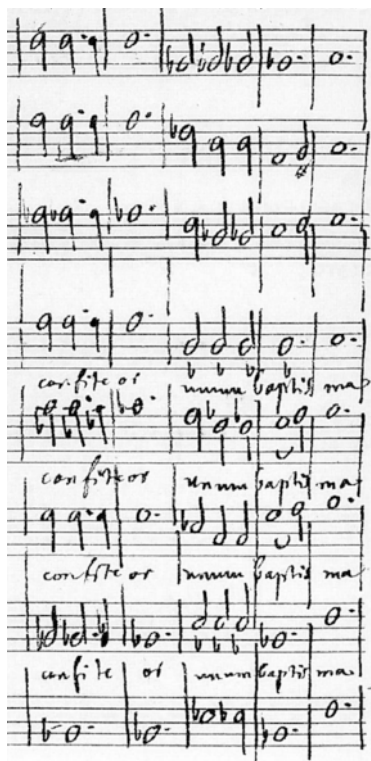 confiteor unum baptisma
confiteor unum baptisma
confiteor unum baptisma
confite or unum baptisma